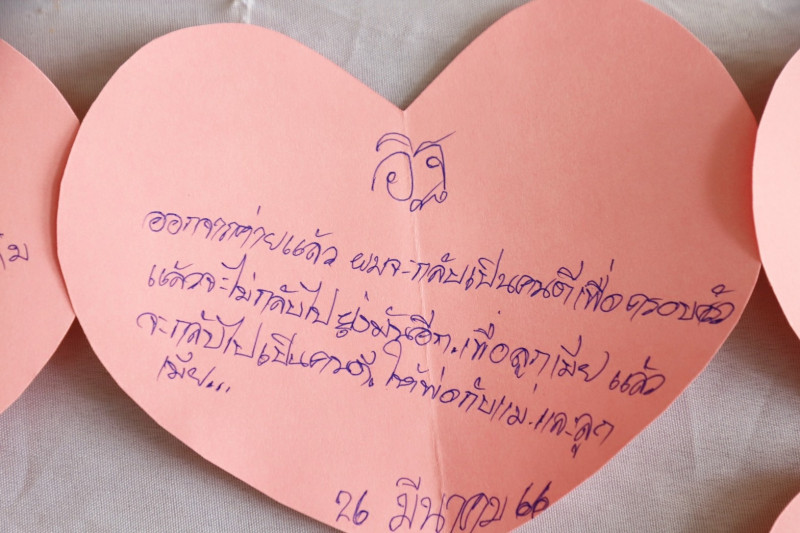 อิฐ
ออกจากค่ายแล้ว ผมจะกลับเป็นคนดีเพื่อครอบครัว
แล้วจะไม่กลับไปยุ่งมันอีก.เพื่อลูกเมีย แล้ว
จะกลับไปเป็นคนดี.ให้พ่อกับแม่.และลูก
เมีย...
26 มีนาคม 66